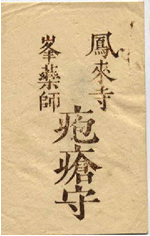 鳳來寺
峯藥師
疱瘡守